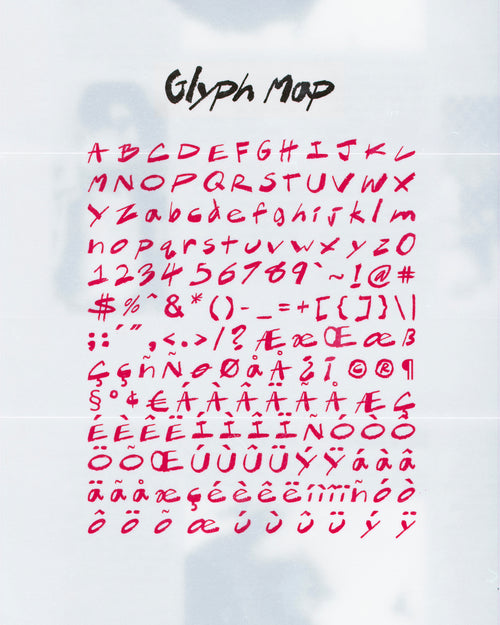 Glyph Map
A B C D E F G H I J K L
M N O P Q R S T U V W X
Y Z a b c d e f g h i j k l m
n o p q r s t u v w x y z 0
1 2 3 4 5 6 7 8 9 ` ~ ! @ #
$ % ^ & * ( ) - _ = + [ { ] } \ |
; : ´ ˝ " , < . > / ? Æ æ Œ œ ß
Ç ç ñ Ñ ø Ø å Å ¿ ¡ © ® ¶
§ ° ¢ € Á À Â Ä Ã Å Æ Ç
É È Ê Ë Í Ì Î Ï Ñ Ó Ò Ô
Ö Õ Œ Ú Ù Û Ü Ý Ÿ á à â
ä ã å æ ç é è ê ë í ì î ï ñ ó ò
ô ö õ œ ú ù û ü ý ÿ